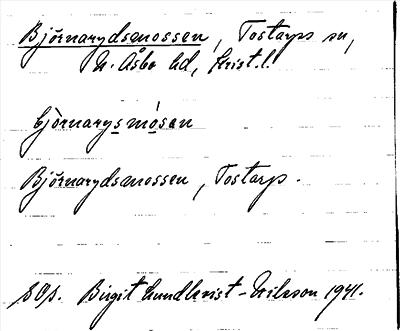 Björnarydsmossen, Tostarps sn,
N. Åsbo hd, Krist. l.
björnarys mósan
Björnarydsmossen, Tostarp.
SOS. Birgit Lundkvist-Nilsson 1941.